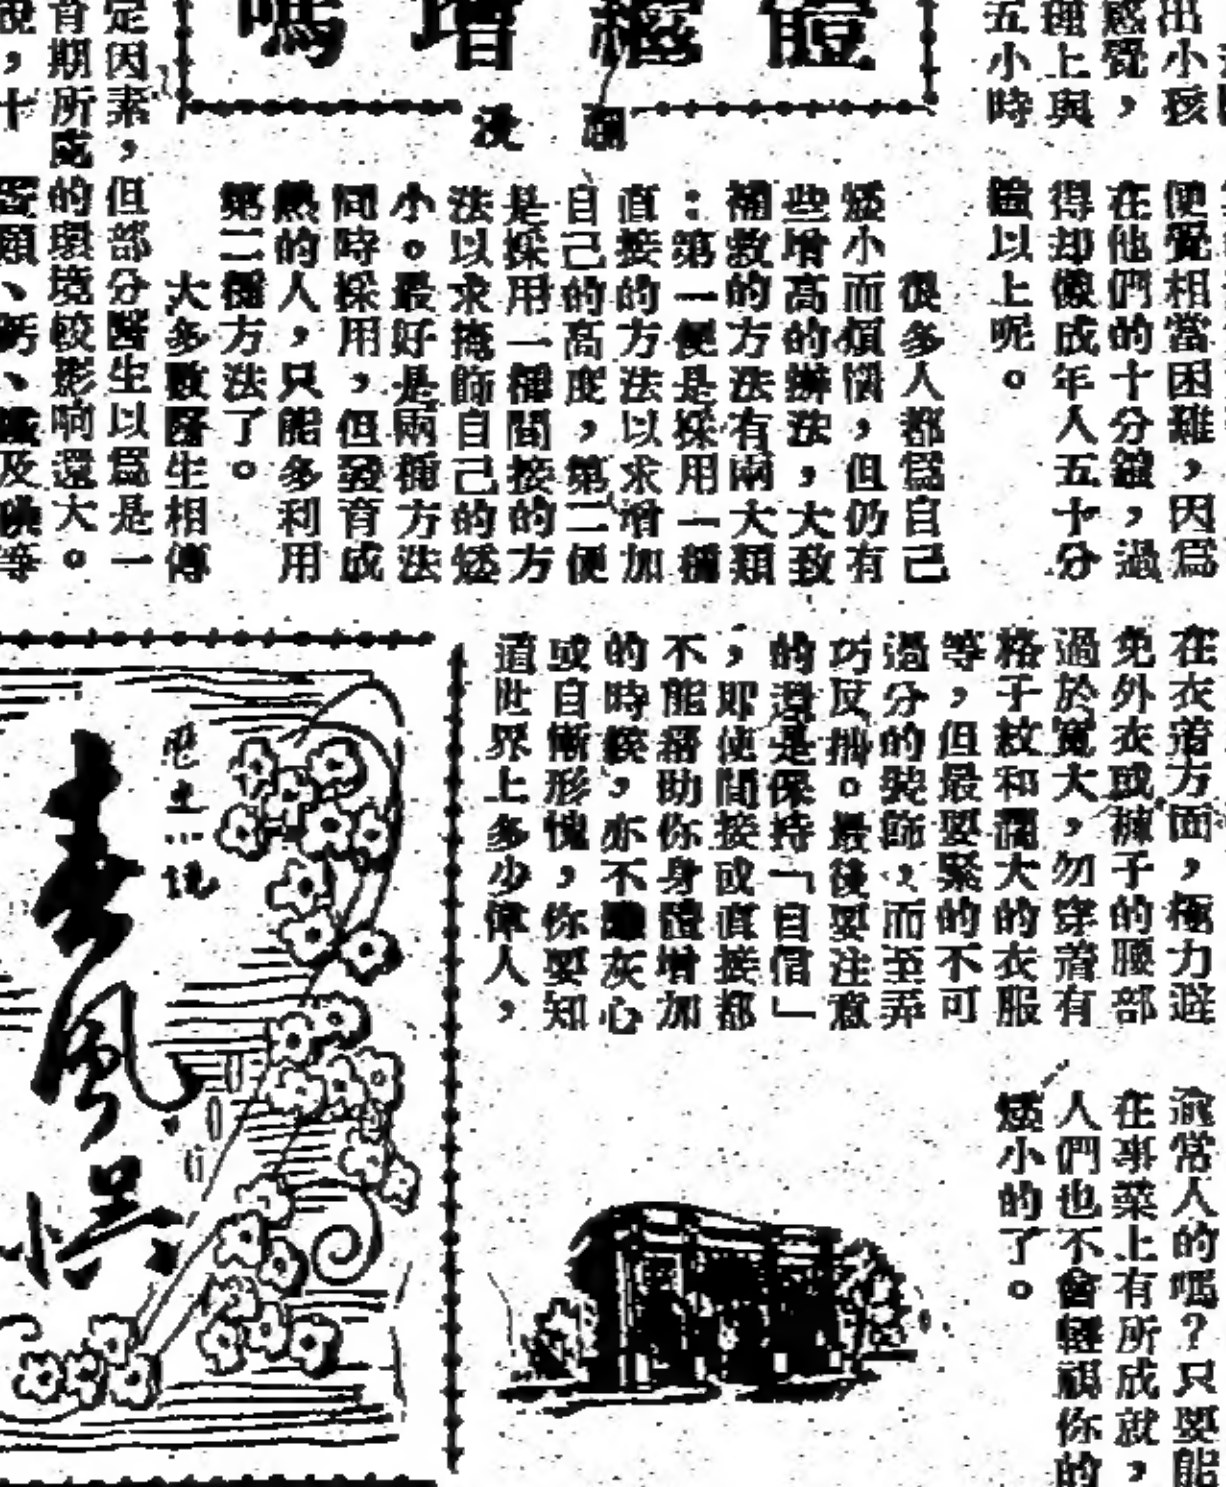 體繼增嗎
出小孩
感覺，
理上與
五小時
便覺相當困難，因爲
在他們的十分鐘，過
得却像成年人五十分
鐘以上呢。
很多人都爲自己
矮小而煩惱，但仍有
些增高的辦法，大致
補救的方法有兩大類
：第一便是採用一種
直接的方法以求增加
自己的高度，第二便
是採用一種間接的方
法以求掩飾自己的矮
小。最好是兩種方法
同時採用，但發育成
熟的人，只能多利用
第二種方法了。
大多數醫生相傳
定因素，但部分醫生以爲是一
育期所處的環境較影响還大。
說，十
蛋類、鈣、及等
在衣着方面，極力避
免外衣或褲子的腰部
過於寬大，勿穿着有
格子紋和濶大的衣服
等，但最要緊的不可
過分的裝飾，而至弄
巧反拙。最後要注意
的還是保持「自信」
，即使間接或直接都
不能幫助你身體增加
的時候，亦不灰心
或自慚形愧，你要知
道世界上多少偉人，
渝常人的嗎？只要能
在事業上有所成就，
人們也不會輕視你的
矮小的了。
春風